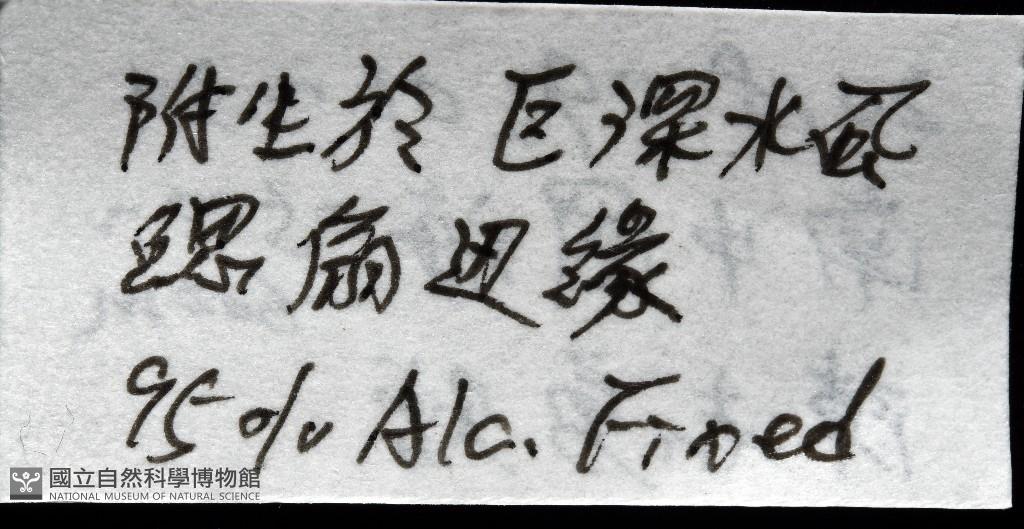 附生於 巨深水蝨
鰓扇边緣
95% Alc. Fixed
國立自然科學博物館
NATIONAL MUSEUM OF NATURAL SCIENCE